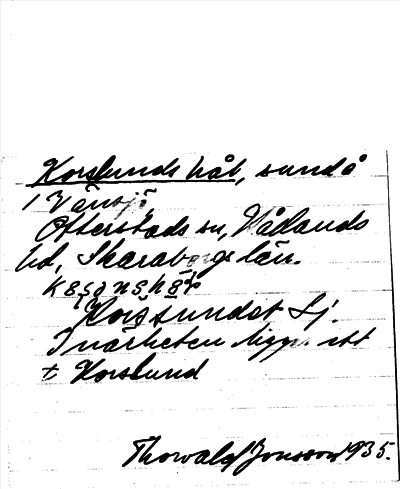 Korslunds håt, sundå
i Vänsjö
Otterstads sn, Kålands
hd, Skaraborgs län.
Korssundet Lj.
I närheten ligger ett
t Korslund
Thorvald Jonsson 1935.